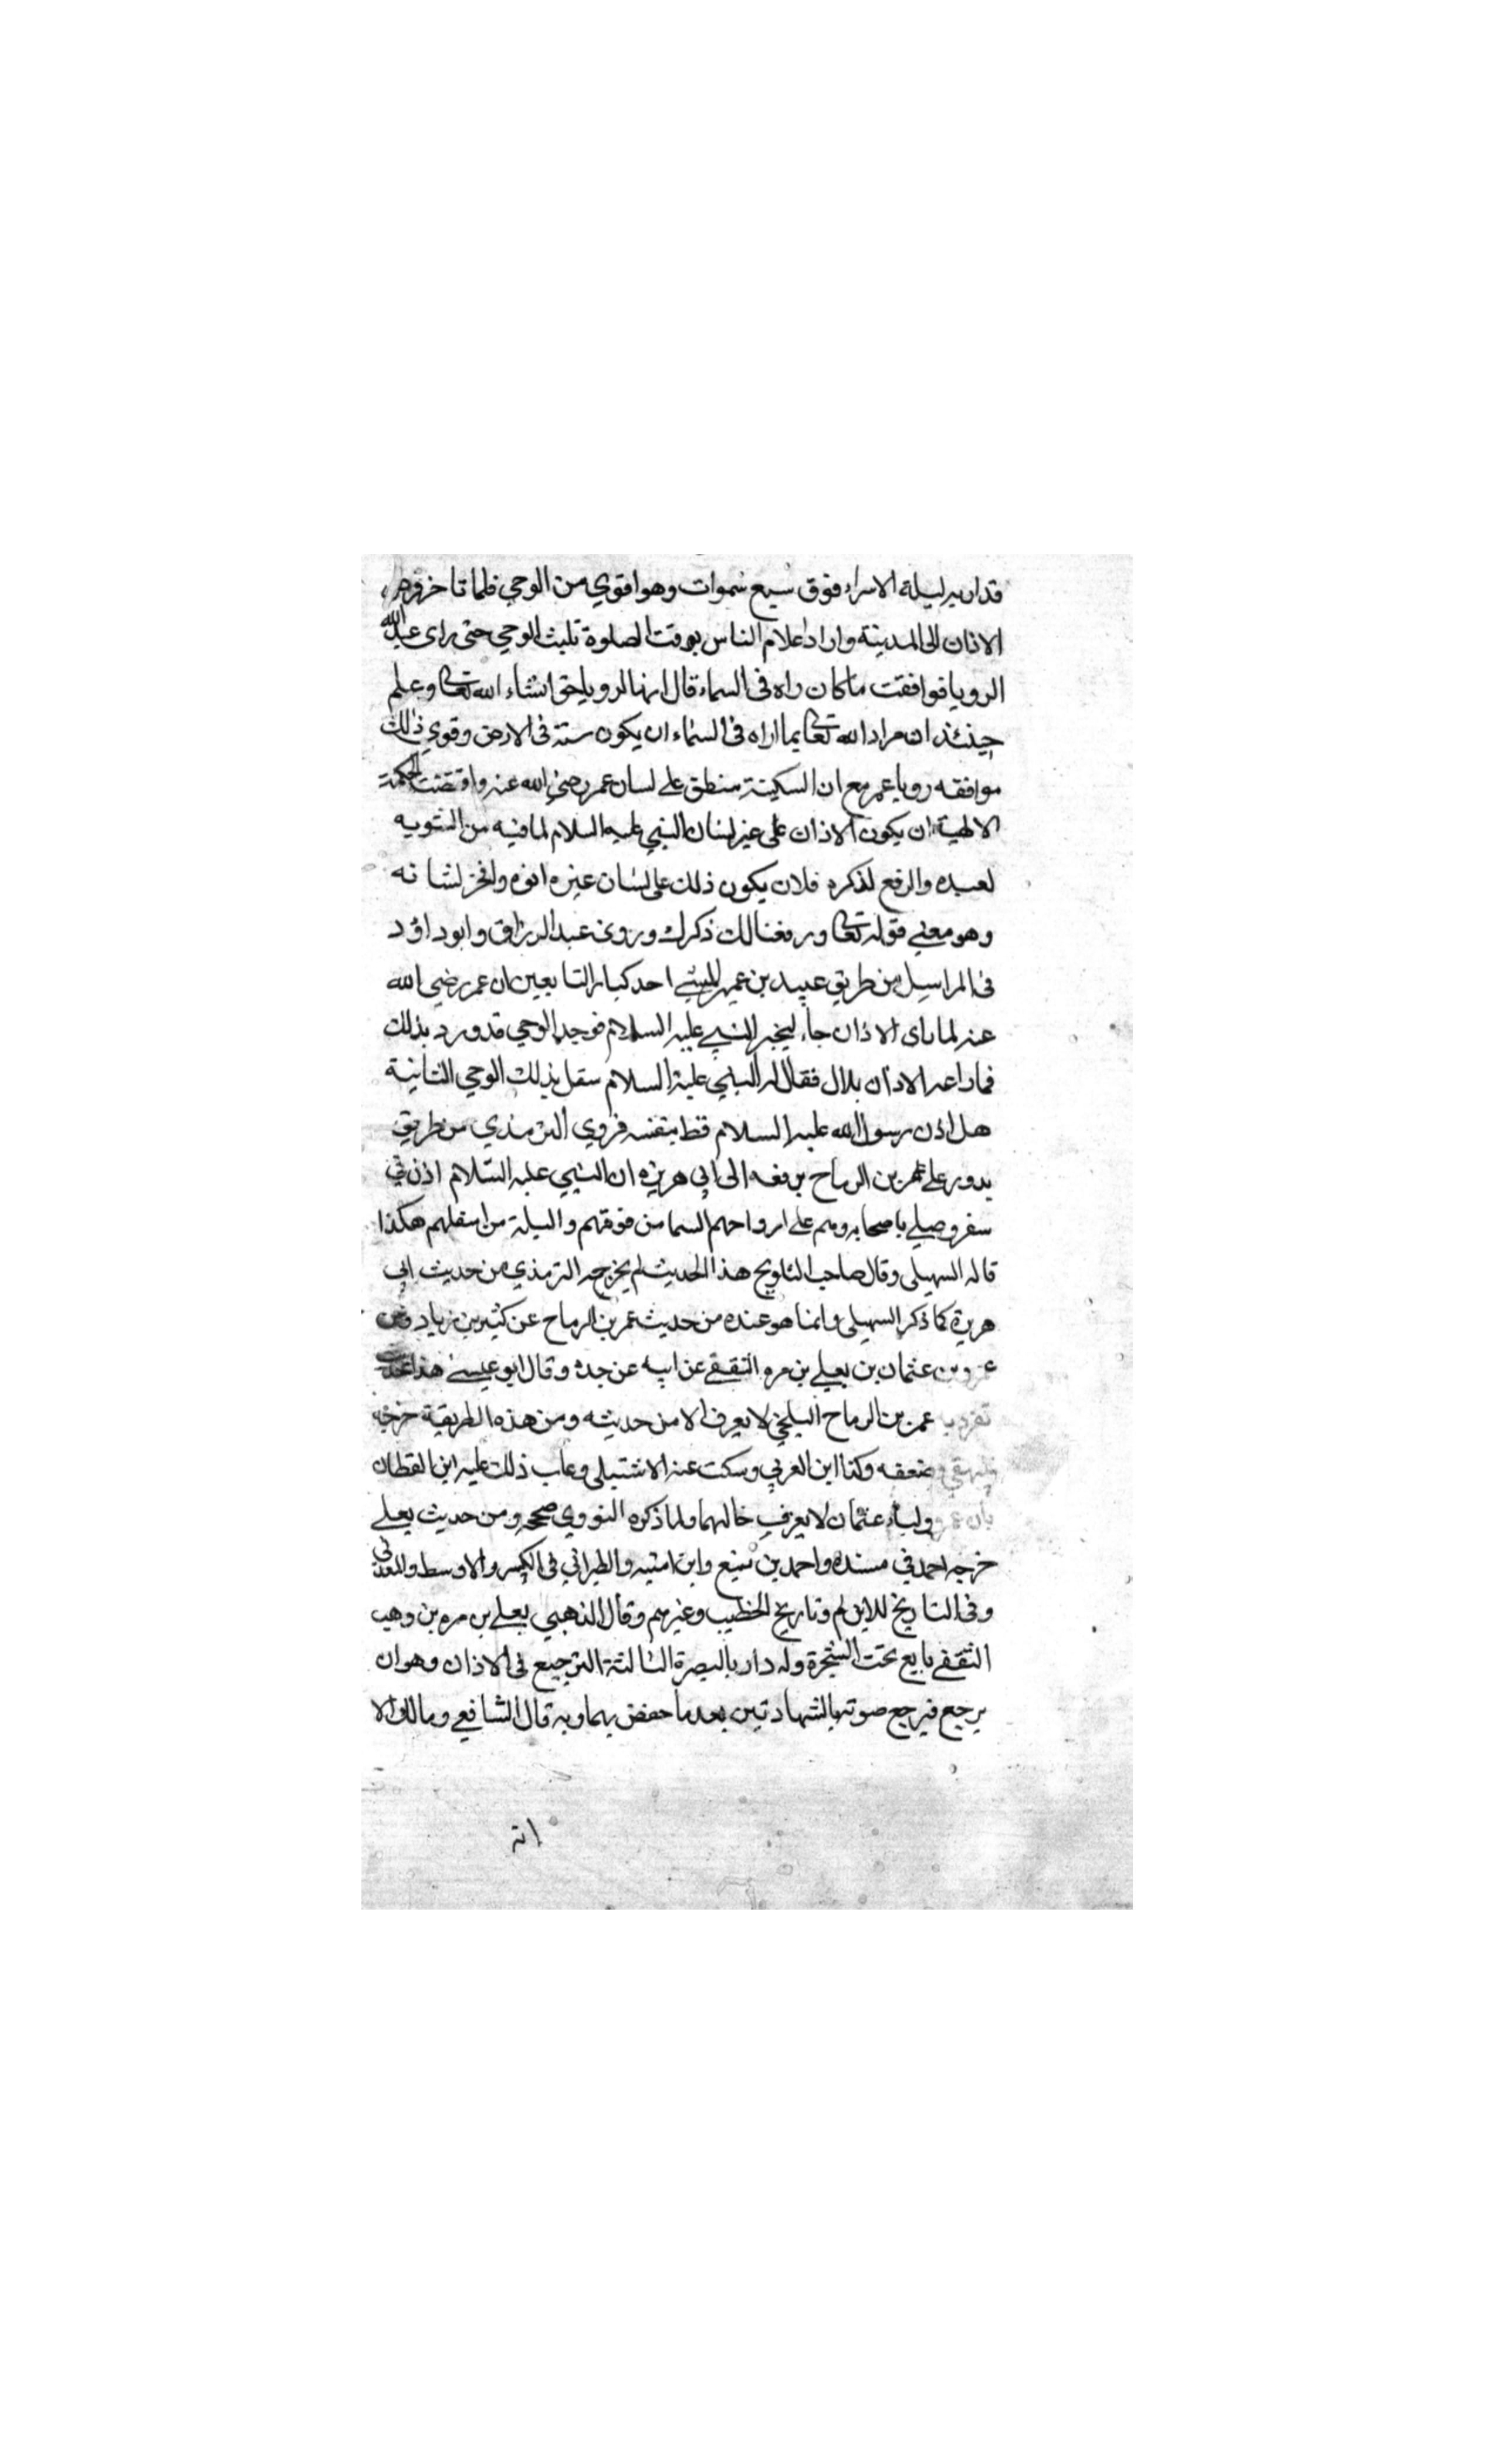 قد اريه ليلة الاسراء فوق سبع سموات وهو اقوي من الوحي فلما تاخر
الاذان الى المدينة واراد اعلام الناس بوقت الصلوة تلبث الوحي حتى راى عبد الله
الرويا فوافقت ما كان راه فى السماء قال انها لرويا حق انشاء الله تعالى وعلم
حينئذ ان مراد الله تعالى بما اراه فى السماء ان يكون سنة فى الارض وقوي ذلك
موافقه رويا عمر مع ان السكينة تنطق على لسان عمر رضي الله عنه واقتضت الحكمة
الالهية ان يكون الاذان على غير لسان النبي عليه السلام لما فيه من التنويه
لعبده والرفع لذكره فلان يكون ذلك على لسان غيره انوه وافخر لشانه
وهو معني قوله تعالى ورفعنا لك ذكرك وروى عبد الرزاق وابو داؤد
فى المراسيل من طريق عبيد بن عمير الليثي احد كبار التابعين ان عمر رضي الله
عنه لما راى الاذان جاء ليخبر النبي عليه السلام فوجد الوحي قد ورد بذلك
فما راعه الا اذان بلال فقال له النبي عليه السلام سبقك بذلك الوحي الثانية
هل اذن رسول الله عليه السلام قط بنفسه فروي الترمذي من طريق
يدور على عمر بن الرماح يرفعه الى ابي هريرة ان النبي عليه السلام اذن في
سفر وصلي باصحابه وهم على رواحلهم السما من فوقهم والبلة من اسفلهم هكذا
قاله السهيلى وقال صاحب التلويح هذا الحديث لم يخرجه الترمذي من حديث ابي
هريرة كما ذكر السهيلى وانما هو عنده من حديث عمر بن الرماح عن كثير بن زياد عن
عمرو بن عثمان بن يعلي بن مره الثقفي عن ابيه عن جده وقال ابو عيسى هذا حديث
تفرد به عمر بن الرماح البلخي لا يعرف الا من حديثه ومن هذه الطريقة خرجه
البيهقي وضعفه وكذا ابن العربي وسكت عنه الاشبيلى وعاب ذلك عليه ابن القطان
بان عمرو واباه عثمان لا يعرف حالهما ولما ذكره النووي صححه ومن حديث يعلي
خرجه احمد في مسنده واحمد بن منيع وابن امية والطبراني فى الكبير والاوسط والعدني
وفى التاريخ للاثرم وتاريخ الخطيب وغيرهم وقال الذهبي يعلي بن مره بن وهب
الثقفي بايع تحت الشجرة وله دار بالبصرة الثالثة الترجيع فى الاذان وهو ان
يرجع فيرجع صوته بالشهادتين بعد ما خفض بهما وبه قال الشافعي ومالك الا
انه